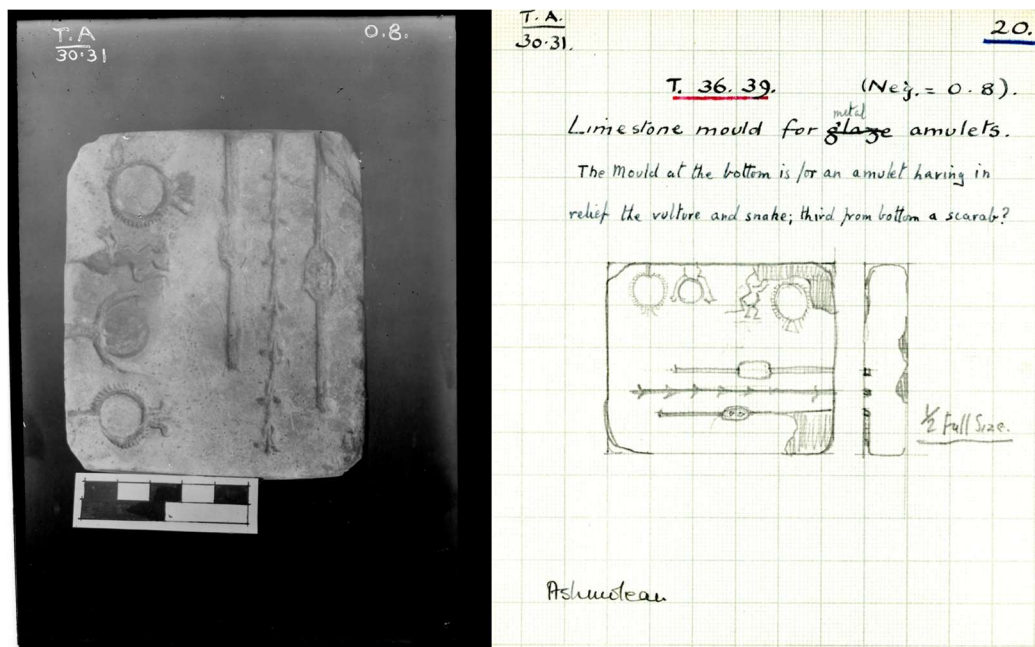 T.A
30·31
O.8.
T. A.
30·31.
20.
T. 36. 39.
(Neg. = O. 8).
metal
Limestone mould for glaze amulets.
The Mould at the bottom is for an amulet having in
relief the vulture and snake; third from bottom a scarab?
1/2 Full Size.
Ashmolean